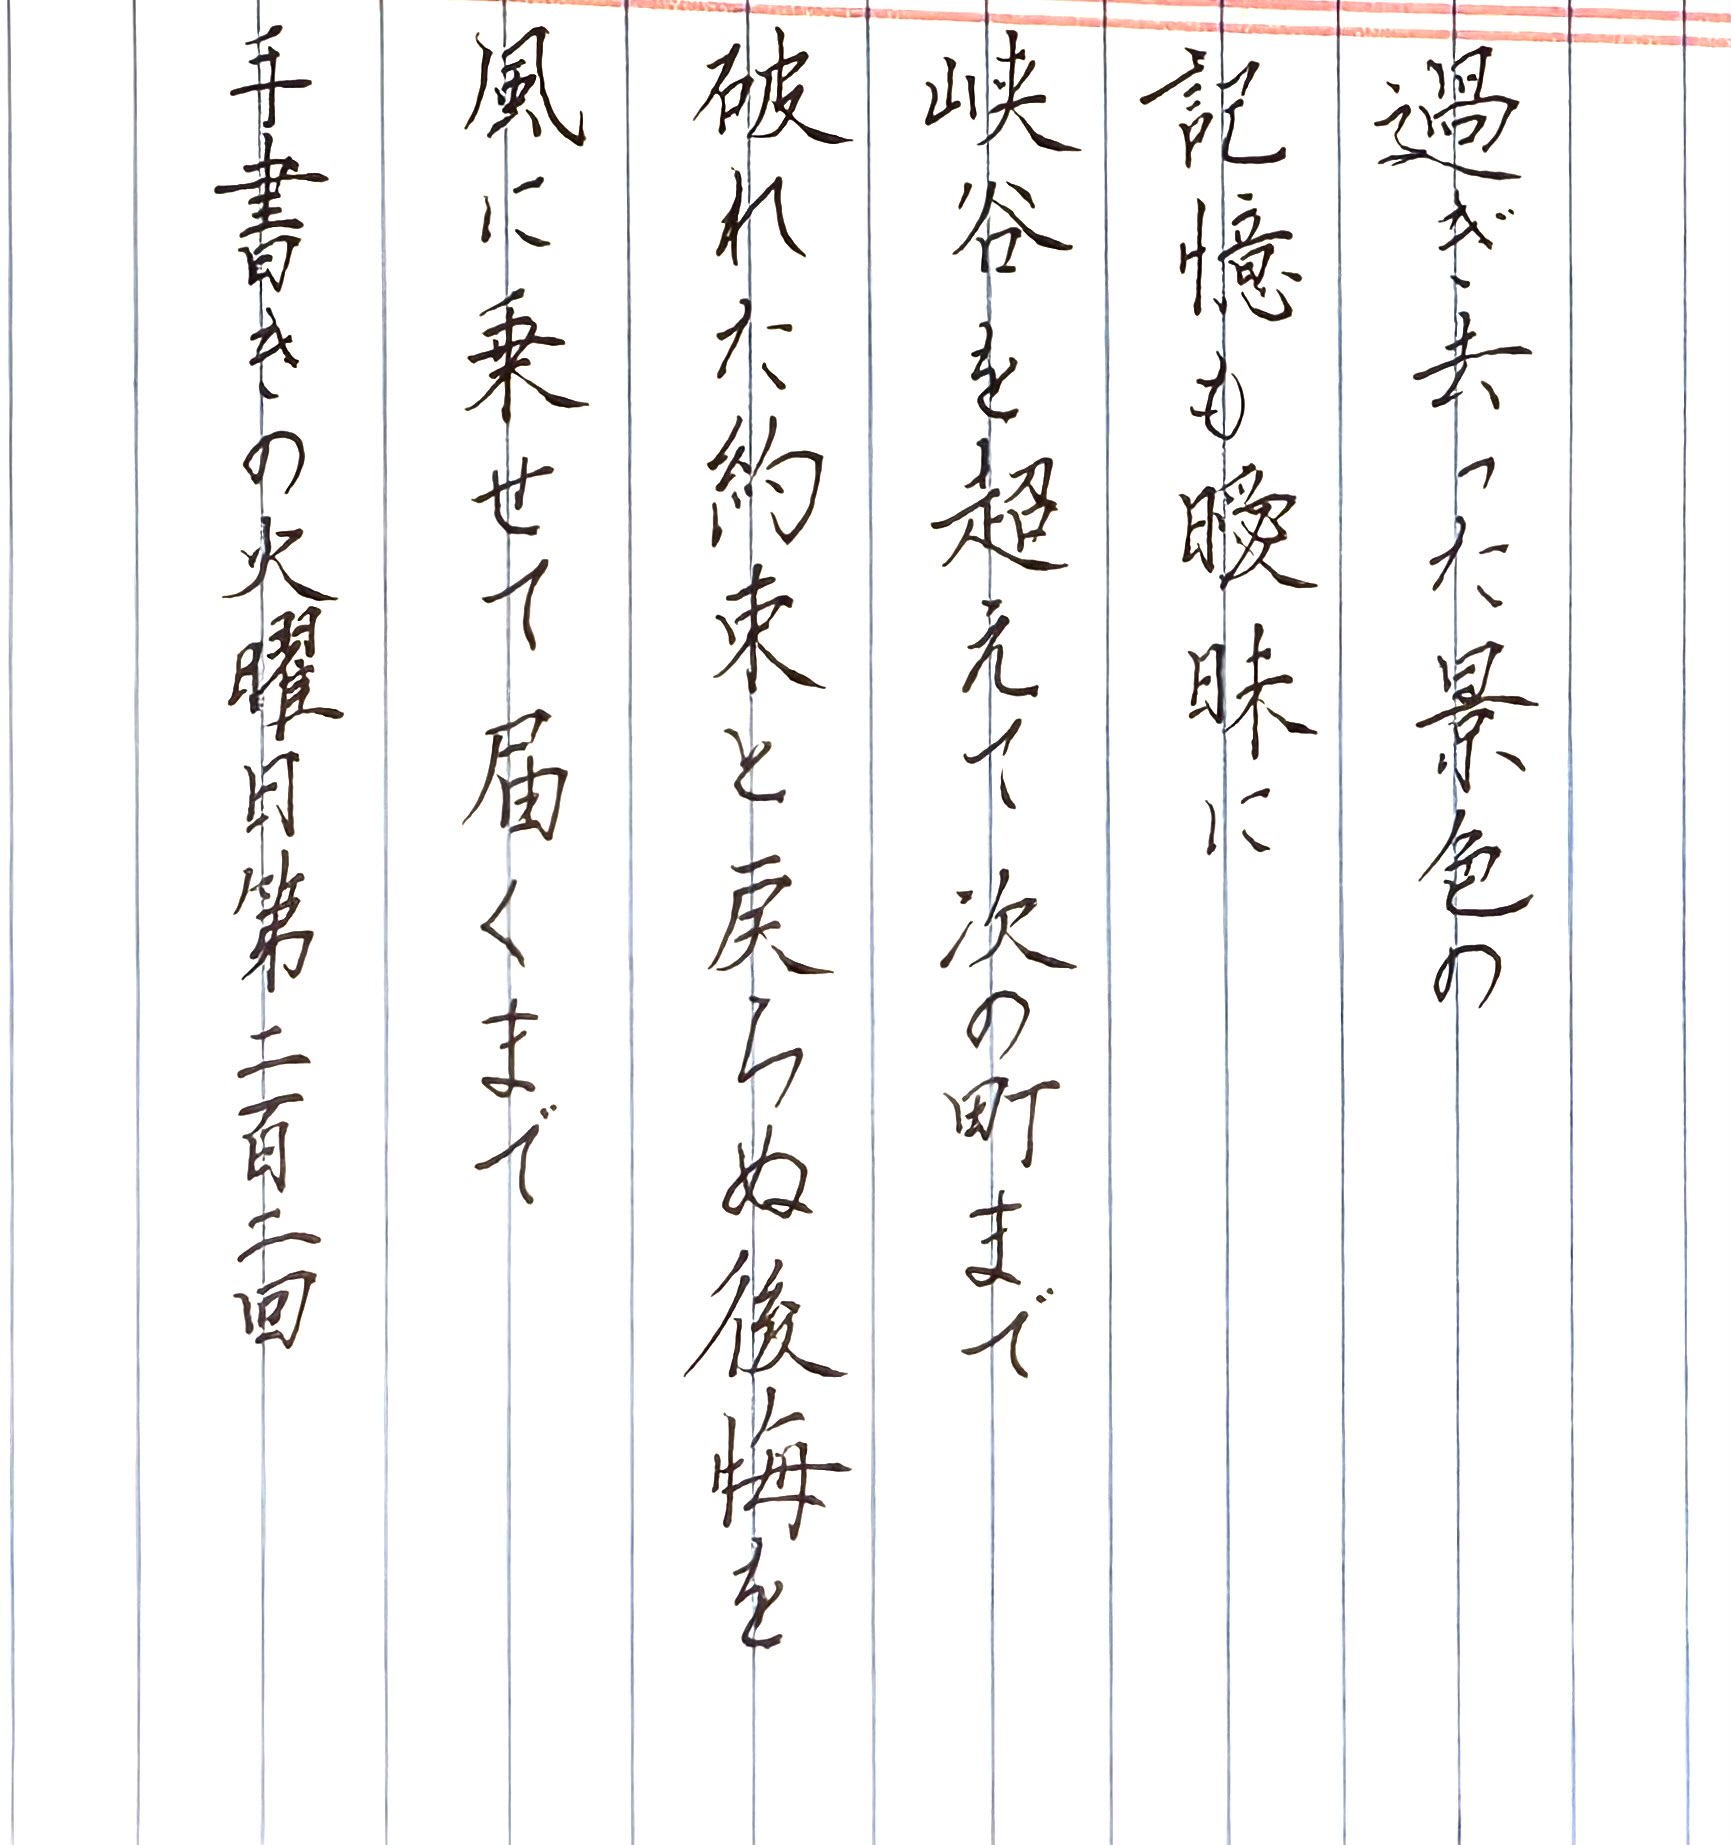 過ぎ去った景色の
記憶も曖昧に
峡谷を超えて次の町まで
破れた約束と戻らぬ後悔を
風に乗せて届くまで
手書きの火曜日第二百二回